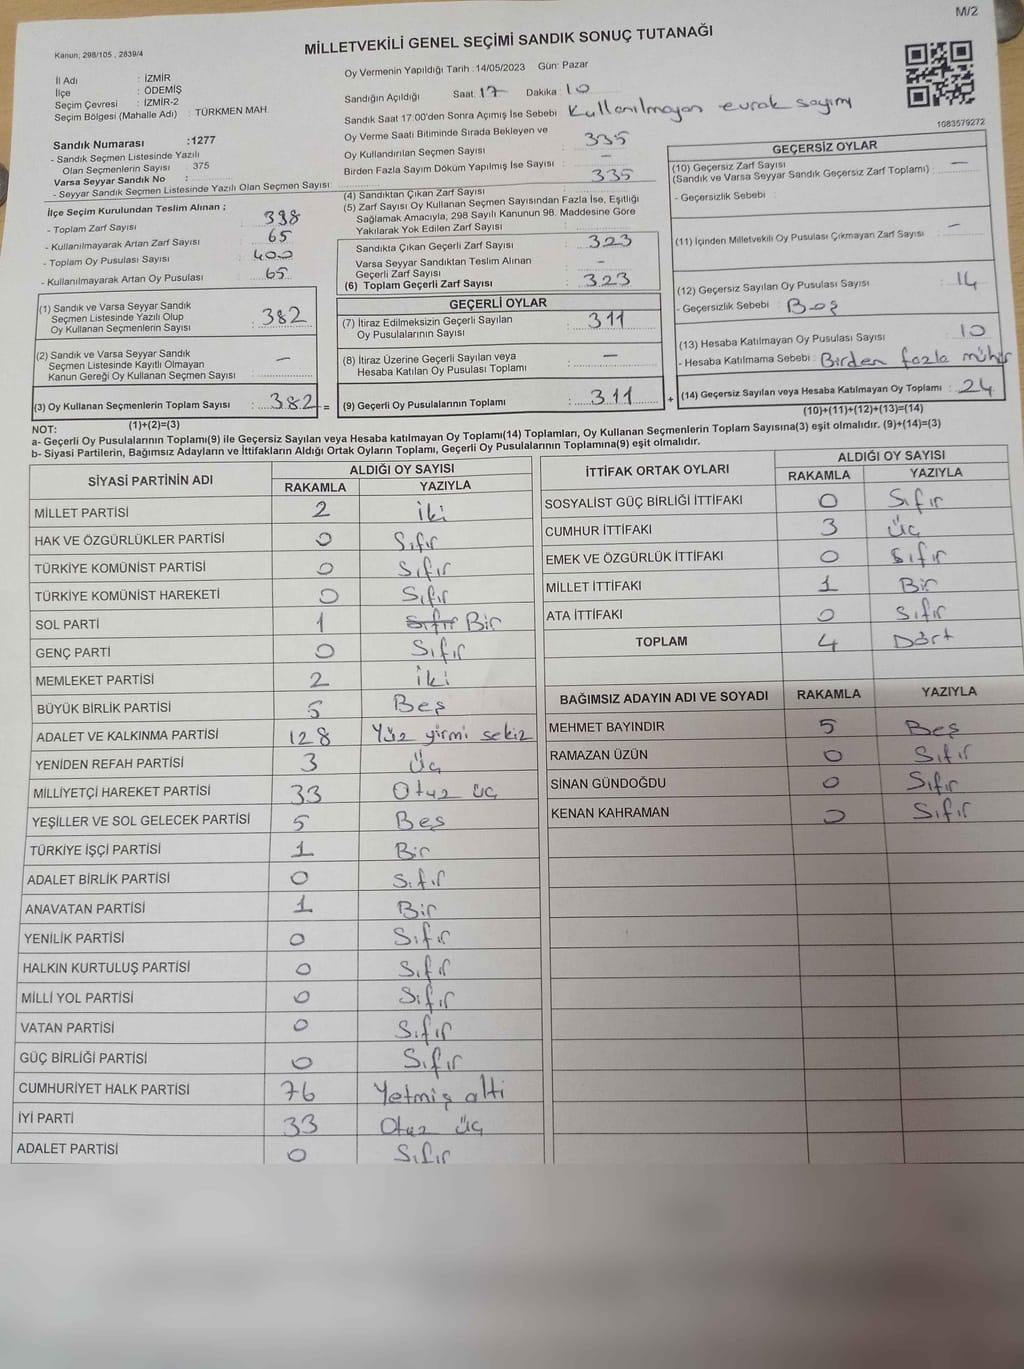 M/2
Kanun; 298/105 , 2839/4
MİLLETVEKİLİ GENEL SEÇİMİ SANDIK SONUÇ TUTANAĞI
İl Adı : İZMİR
İlçe : ÖDEMİŞ
Seçim Çevresi : İZMİR-2
Seçim Bölgesi (Mahalle Adı) : TÜRKMEN MAH.
Sandık Numarası :1277
- Sandık Seçmen Listesinde Yazılı
Olan Seçmenlerin Sayısı : 375
Varsa Seyyar Sandık No :
- Seyyar Sandık Seçmen Listesinde Yazılı Olan Seçmen Sayısı:
İlçe Seçim Kurulundan Teslim Alınan ;
- Toplam Zarf Sayısı : 398
- Kullanılmayarak Artan Zarf Sayısı : 65
- Toplam Oy Pusulası Sayısı : 400
- Kullanılmayarak Artan Oy Pusulası : 65
(1) Sandık ve Varsa Seyyar Sandık
Seçmen Listesinde Yazılı Olup
Oy Kullanan Seçmenlerin Sayısı : 382
(2) Sandık ve Varsa Seyyar Sandık
Seçmen Listesinde Kayıtlı Olmayan
Kanun Gereği Oy Kullanan Seçmen Sayısı : —
(3) Oy Kullanan Seçmenlerin Toplam Sayısı : 382 =
(1)+(2)=(3)
Oy Vermenin Yapıldığı Tarih :14/05/2023 Gün: Pazar
Sandığın Açıldığı Saat: 17 Dakika : 10
Sandık Saat 17:00'den Sonra Açımış İse Sebebi : Kullanılmayan evrak sayımı
Oy Verme Saati Bitiminde Sırada Bekleyen ve
Oy Kullandırılan Seçmen Sayısı : 335
Birden Fazla Sayım Döküm Yapılmış İse Sayısı : —
(4) Sandıktan Çıkan Zarf Sayısı : 335
(5) Zarf Sayısı Oy Kullanan Seçmen Sayısından Fazla İse, Eşitliği
Sağlamak Amacıyla, 298 Sayılı Kanunun 98. Maddesine Göre
Yakılarak Yok Edilen Zarf Sayısı :
Sandıkta Çıkan Geçerli Zarf Sayısı : 323
Varsa Seyyar Sandıktan Teslim Alınan
Geçerli Zarf Sayısı : —
(6) Toplam Geçerli Zarf Sayısı : 323
GEÇERLİ OYLAR
(7) İtiraz Edilmeksizin Geçerli Sayılan
Oy Pusulalarının Sayısı : 311
(8) İtiraz Üzerine Geçerli Sayılan veya
Hesaba Katılan Oy Pusulası Toplamı : —
(9) Geçerli Oy Pusulalarının Toplamı : 311 +
1083579272
GEÇERSİZ OYLAR
(10) Geçersiz Zarf Sayısı
(Sandık ve Varsa Seyyar Sandık Geçersiz Zarf Toplamı) : —
- Geçersizlik Sebebi :
(11) İçinden Milletvekili Oy Pusulası Çıkmayan Zarf Sayısı : —
(12) Geçersiz Sayılan Oy Pusulası Sayısı : 14
- Geçersizlik Sebebi : Boş
(13) Hesaba Katılmayan Oy Pusulası Sayısı : 10
- Hesaba Katılmama Sebebi : Birden fazla mühür
(14) Geçersiz Sayılan veya Hesaba Katılmayan Oy Toplamı : 24
(10)+(11)+(12)+(13)=(14)
NOT:
a- Geçerli Oy Pusulalarının Toplamı(9) ile Geçersiz Sayılan veya Hesaba katılmayan Oy Toplamı(14) Toplamları, Oy Kullanan Seçmenlerin Toplam Sayısına(3) eşit olmalıdır. (9)+(14)=(3)
b- Siyasi Partilerin, Bağımsız Adayların ve İttifakların Aldığı Ortak Oyların Toplamı, Geçerli Oy Pusulalarının Toplamına(9) eşit olmalıdır.
SİYASİ PARTİNİN ADI ALDIĞI OY SAYISI
RAKAMLA YAZIYLA
MİLLET PARTİSİ 2 iki
HAK VE ÖZGÜRLÜKLER PARTİSİ 0 Sıfır
TÜRKİYE KOMÜNİST PARTİSİ 0 Sıfır
TÜRKİYE KOMÜNİST HAREKETİ 0 Sıfır
SOL PARTİ 1 Sıfır Bir
GENÇ PARTİ 0 Sıfır
MEMLEKET PARTİSİ 2 iki
BÜYÜK BİRLİK PARTİSİ 5 Beş
ADALET VE KALKINMA PARTİSİ 128 Yüz yirmi sekiz
YENİDEN REFAH PARTİSİ 3 Üç
MİLLİYETÇİ HAREKET PARTİSİ 33 Otuz üç
YEŞİLLER VE SOL GELECEK PARTİSİ 5 Beş
TÜRKİYE İŞÇİ PARTİSİ 1 Bir
ADALET BİRLİK PARTİSİ 0 Sıfır
ANAVATAN PARTİSİ 1 Bir
YENİLİK PARTİSİ 0 Sıfır
HALKIN KURTULUŞ PARTİSİ 0 Sıfır
MİLLİ YOL PARTİSİ 0 Sıfır
VATAN PARTİSİ 0 Sıfır
GÜÇ BİRLİĞİ PARTİSİ 0 Sıfır
CUMHURİYET HALK PARTİSİ 76 Yetmiş alti
İYİ PARTİ 33 Otuz üç
ADALET PARTİSİ 0 Sıfır
İTTİFAK ORTAK OYLARI ALDIĞI OY SAYISI
RAKAMLA YAZIYLA
SOSYALİST GÜÇ BİRLİĞİ İTTİFAKI 0 Sıfır
CUMHUR İTTİFAKI 3 üç
EMEK VE ÖZGÜRLÜK İTTİFAKI 0 Sıfır
MİLLET İTTİFAKI 1 Bir
ATA İTTİFAKI 0 Sıfır
TOPLAM 4 Dört
BAĞIMSIZ ADAYIN ADI VE SOYADI RAKAMLA YAZIYLA
MEHMET BAYINDIR 5 Beş
RAMAZAN ÜZÜN 0 Sıfır
SİNAN GÜNDOĞDU 0 Sıfır
KENAN KAHRAMAN 0 Sıfır